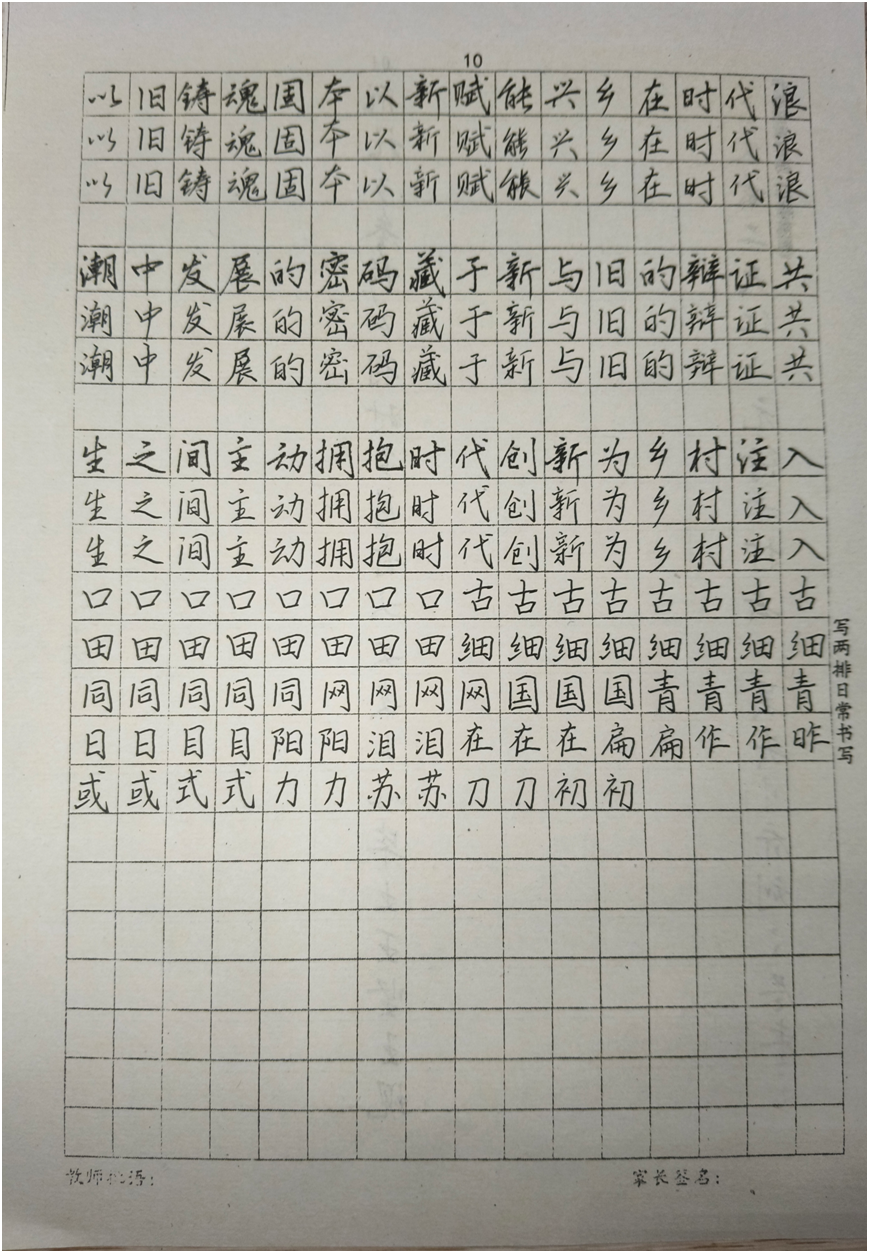 10
以旧铸魂固本以新赋能兴乡在时代浪
以旧铸魂固本以新赋能兴乡在时代浪
以旧铸魂固本以新赋能兴乡在时代浪
潮中发展的密码藏于新与旧的辩证共
潮中发展的密码藏于新与旧的辩证共
潮中发展的密码藏于新与旧的辩证共
生之间主动拥抱时代创新为乡村注入
生之间主动拥抱时代创新为乡村注入
生之间主动拥抱时代创新为乡村注入
口口口口口口口口古古古古古古古古
田田田田田田田田细细细细细细细细
同同同同同网网网网国国国青青青青
日日目目阳阳泪泪在在在扁扁作作昨
或或式式力力苏苏刀刀初初
写两排日常书写
教师批语：
家长签名：